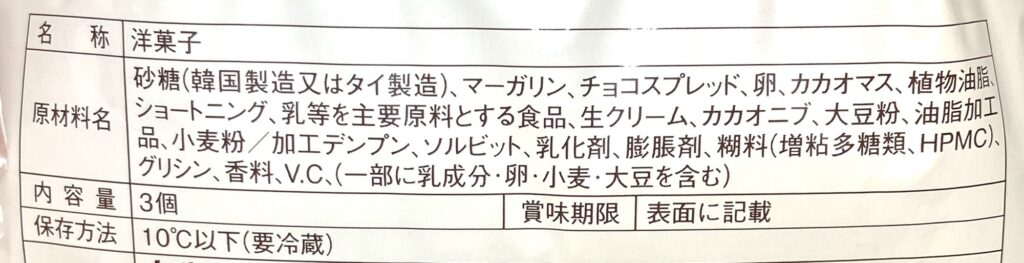 名称 洋菓子
原材料名 砂糖(韓国製造又はタイ製造)、マーガリン、チョコスプレッド、卵、カカオマス、植物油脂、
ショートニング、乳等を主要原料とする食品、生クリーム、カカオニブ、大豆粉、油脂加工
品、小麦粉/加工デンプン、ソルビット、乳化剤、膨脹剤、糊料(増粘多糖類、HPMC)、
グリシン、香料、V.C、(一部に乳成分・卵・小麦・大豆を含む)
内容量 3個 賞味期限 表面に記載
保存方法 10℃以下(要冷蔵)